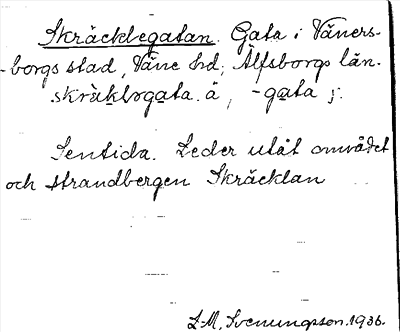 Skräcklegatan. Gata i Väners-
-borgs stad, Väne hd, Älfsborgs län.
skrȧ̀klɘgata. ä, -gata j.
Sentida. Leder utåt området
och strandbergen Skräcklan
L-M. Svenungsson. 1936.